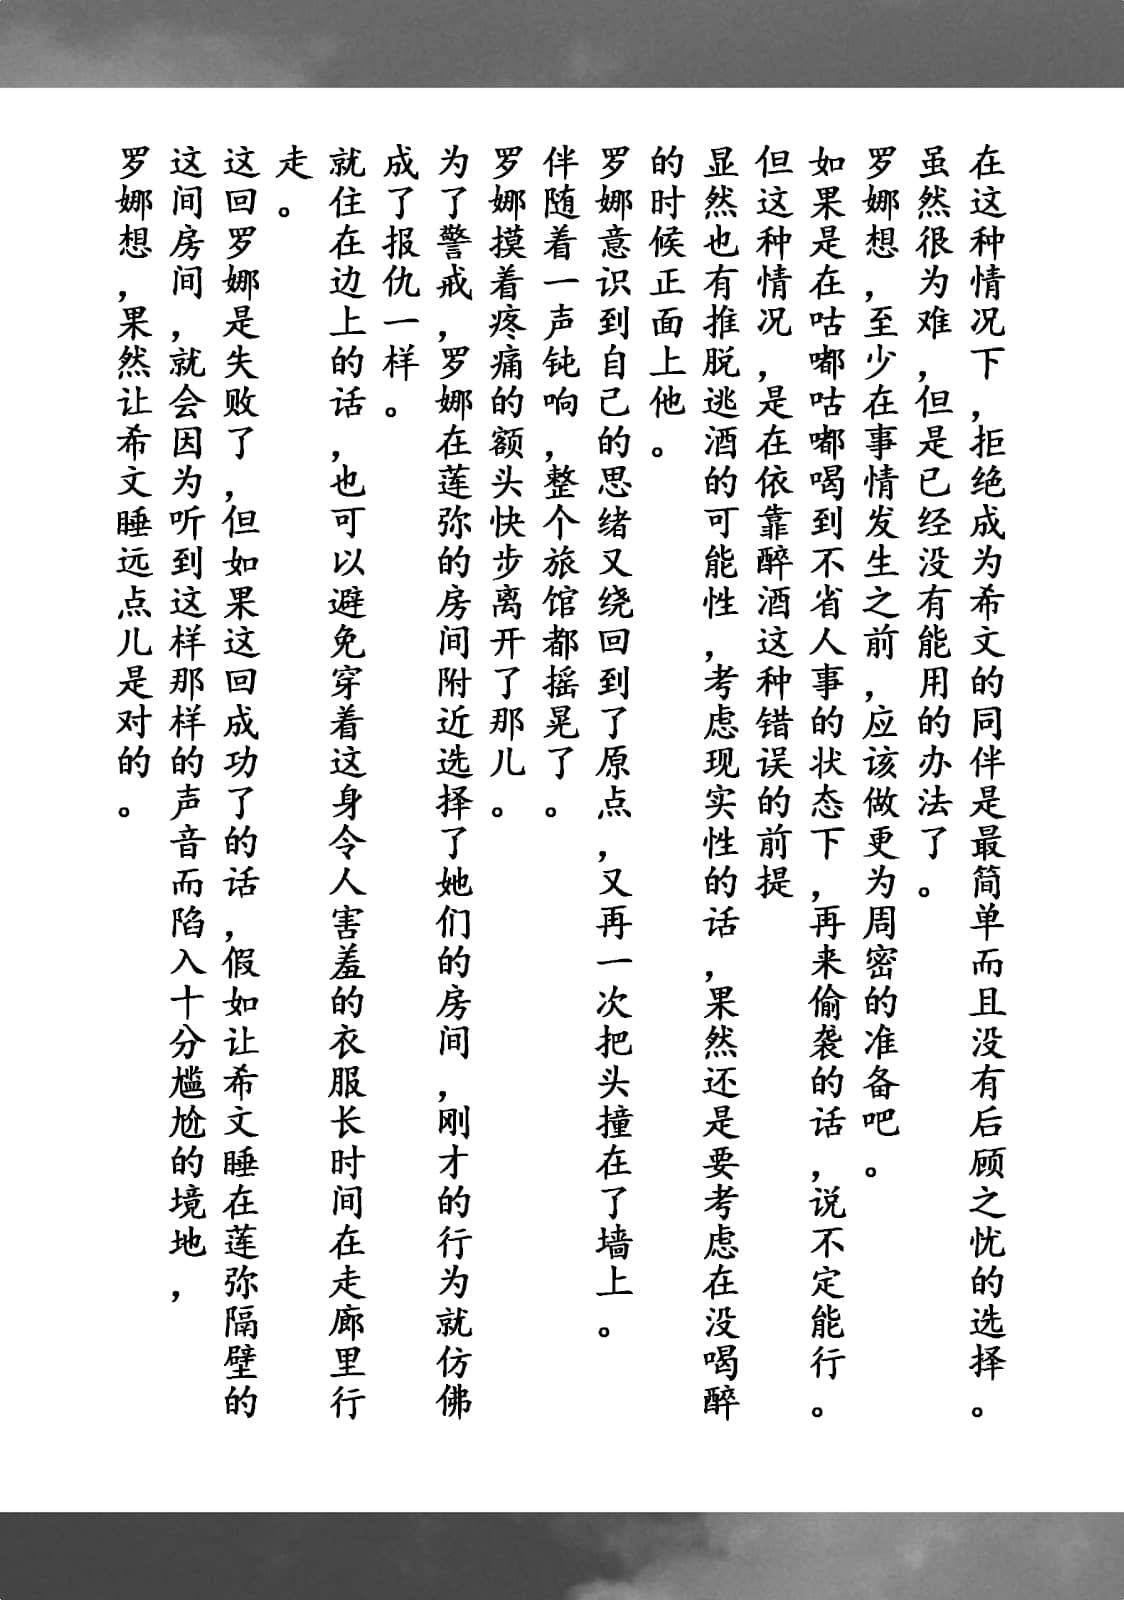 在这种情况下，拒绝成为希文的同伴是最简单而且没有后顾之忧的选择。
虽然很为难，但是已经没有能用的办法了。
罗娜想，至少在事情发生之前，应该做更为周密的准备吧。
如果是在咕嘟咕嘟喝到不省人事的状态下，再来偷袭的话，说不定能行。
但这种情况，是在依靠醉酒这种错误的前提
显然也有推脱逃酒的可能性，考虑现实性的话，果然还是要考虑在没喝醉
的时候正面上他。
罗娜意识到自己的思绪又绕回到了原点，又再一次把头撞在了墙上。
伴随着一声钝响，整个旅馆都摇晃了。
罗娜摸着疼痛的额头快步离开了那儿。
为了警戒，罗娜在莲弥的房间附近选择了她们的房间，刚才的行为就仿佛
成了报仇一样。
就住在边上的话，也可以避免穿着这身令人害羞的衣服长时间在走廊里行
走。
这回罗娜是失败了，但如果这回成功了的话，假如让希文睡在莲弥隔壁的
这间房间，就会因为听到这样那样的声音而陷入十分尴尬的境地，
罗娜想，果然让希文睡远点儿是对的。